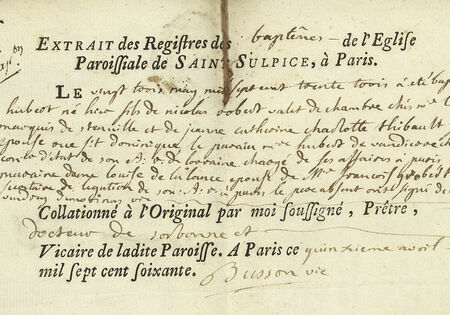 EXTRAIT des Registres des baptêmes de l'Eglise
Paroissiale de SAINT SULPICE, à Paris.
LE vingt trois may mil sept cent trente trois a été bap
hubert né hier fils de nicolas robert valet de chambre chés mr le
marquis de et de jeanne catherine charlotte thibault
épouse rue st dominique, le parain mre hubert de
con d'état de son A. r. de lorraine chargé de ses affaires à paris
maraine dame louise de épouse de Mre francois
secretaire de légation de son A. r. à paris le pere absent ont signé
Collationné à l'Original par moi soussigné, Prêtre,
docteur de sorbonne et
Vicaire de ladite Paroisse. A Paris ce quinzieme avril
mil sept cent soixante. Busson vic